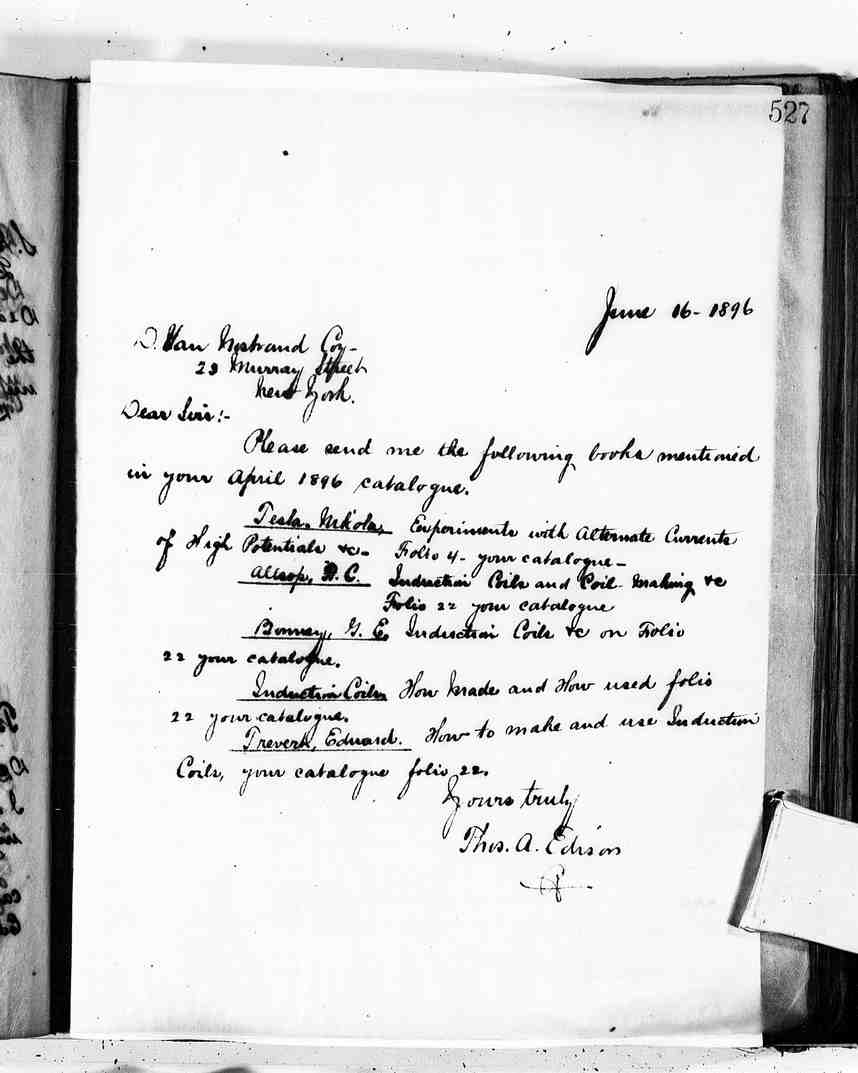 527
June 16- 1896
D. Van Nostrand Coy-
23 Murray Street
New York.
Dear Sirs:-
Please send me the following books mentioned
in your April 1896 catalogue.
Tesla, Nikola, Experiments with Alternate Currents
of High Potentials &c- Folio 4- your catalogue-
Allsop, F. C. Induction Coils and Coil Making &c
Folio 22 your catalogue
Bonney, G. E. Induction Coils &c on Folio
22 your catalogue.
Induction Coils, How Made and How used folio
22 your catalogue.
Trevert, Edward. How to make and use Induction
Coils, your catalogue folio 22.
Yours truly
Thos. A. Edison